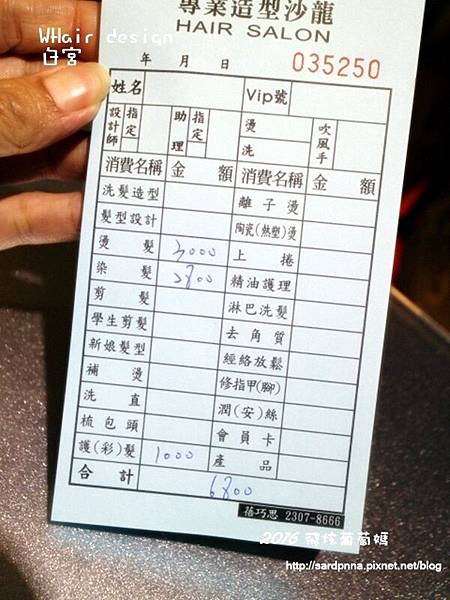 專業造型沙龍
WHair design
白宮
HAIR SALON
年 月 日 035250
姓名 Vip號
設計師 指定 助理 指定 燙 洗 吹風手
消費名稱 金額 消費名稱 金額
洗髮造型 離子燙
髮型設計 陶瓷(熱塑)燙
燙髮 3000 上捲
染髮 2800 精油護理
剪髮 淋巴洗髮
學生剪髮 去角質
新娘髮型 經絡放鬆
補燙 修指甲(腳)
洗直 潤(安)絲
梳包頭 會員卡
護(彩)髮 1000 產品
合計 6800
蓓巧思 2307-8666
2016 飛炫葡萄媽
http://sardpnna.pixnet.net/blog